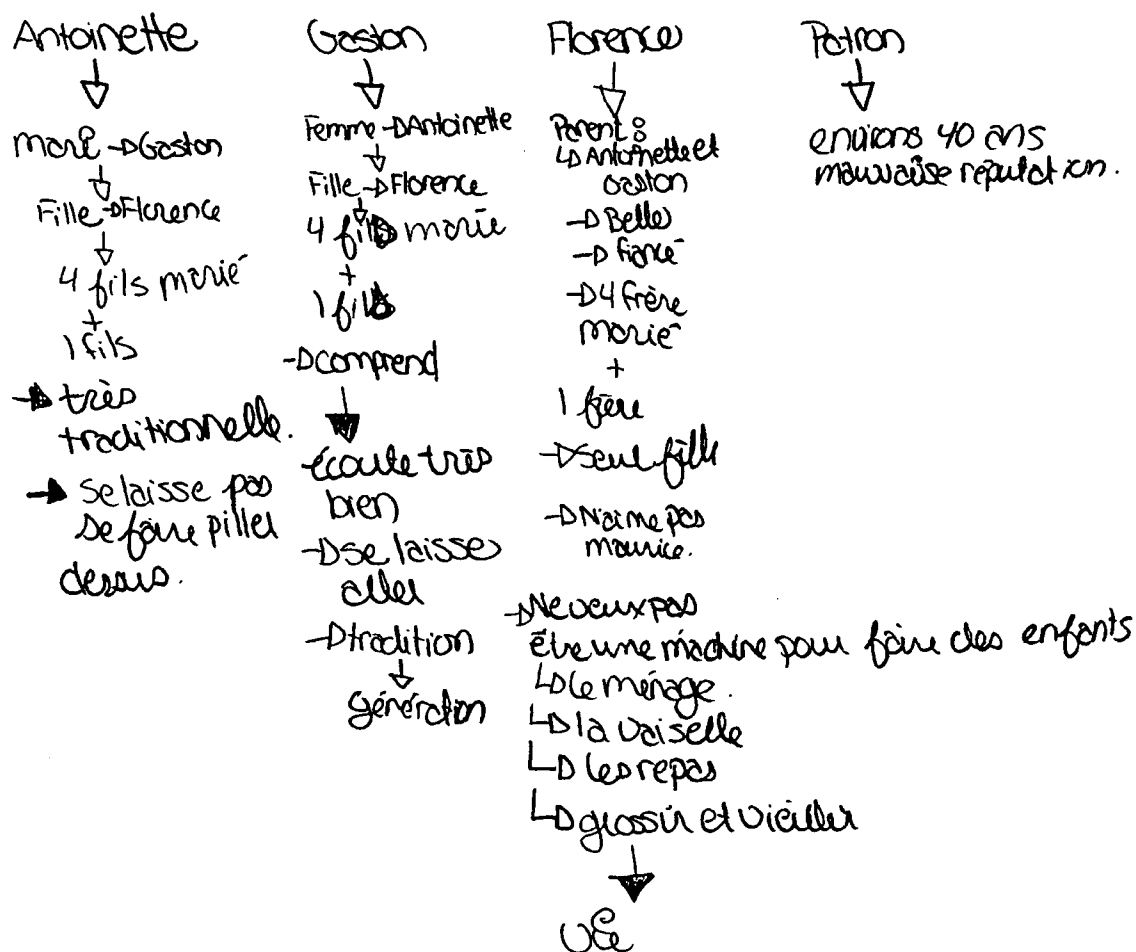 Antoinette
mari → Gaston
Fille → Florence
4 fils marié
+
1 fils
→ très
traditionnelle.
→ se laisse pas
se faire piller
dessus.
Gaston
Femme → Antoinette
Fille → Florence
4 fils marié
+
1 fils
→ comprend
écoute très
bien
→ se laisse
aller
→ tradition
génération
Florence
Parent :
↳ Antoinette et
Gaston
→ Belle
→ fiancé
→ 4 frère
marié
+
1 frère
→ seul fille
→ N'aime pas
maurice.
→ Ne veux pas
être une machine pour faire des enfants
↳ le ménage.
↳ la vaiselle
↳ les repas
↳ grossir et vieillir
Patron
environs 40 ans
mauvaise réputation.